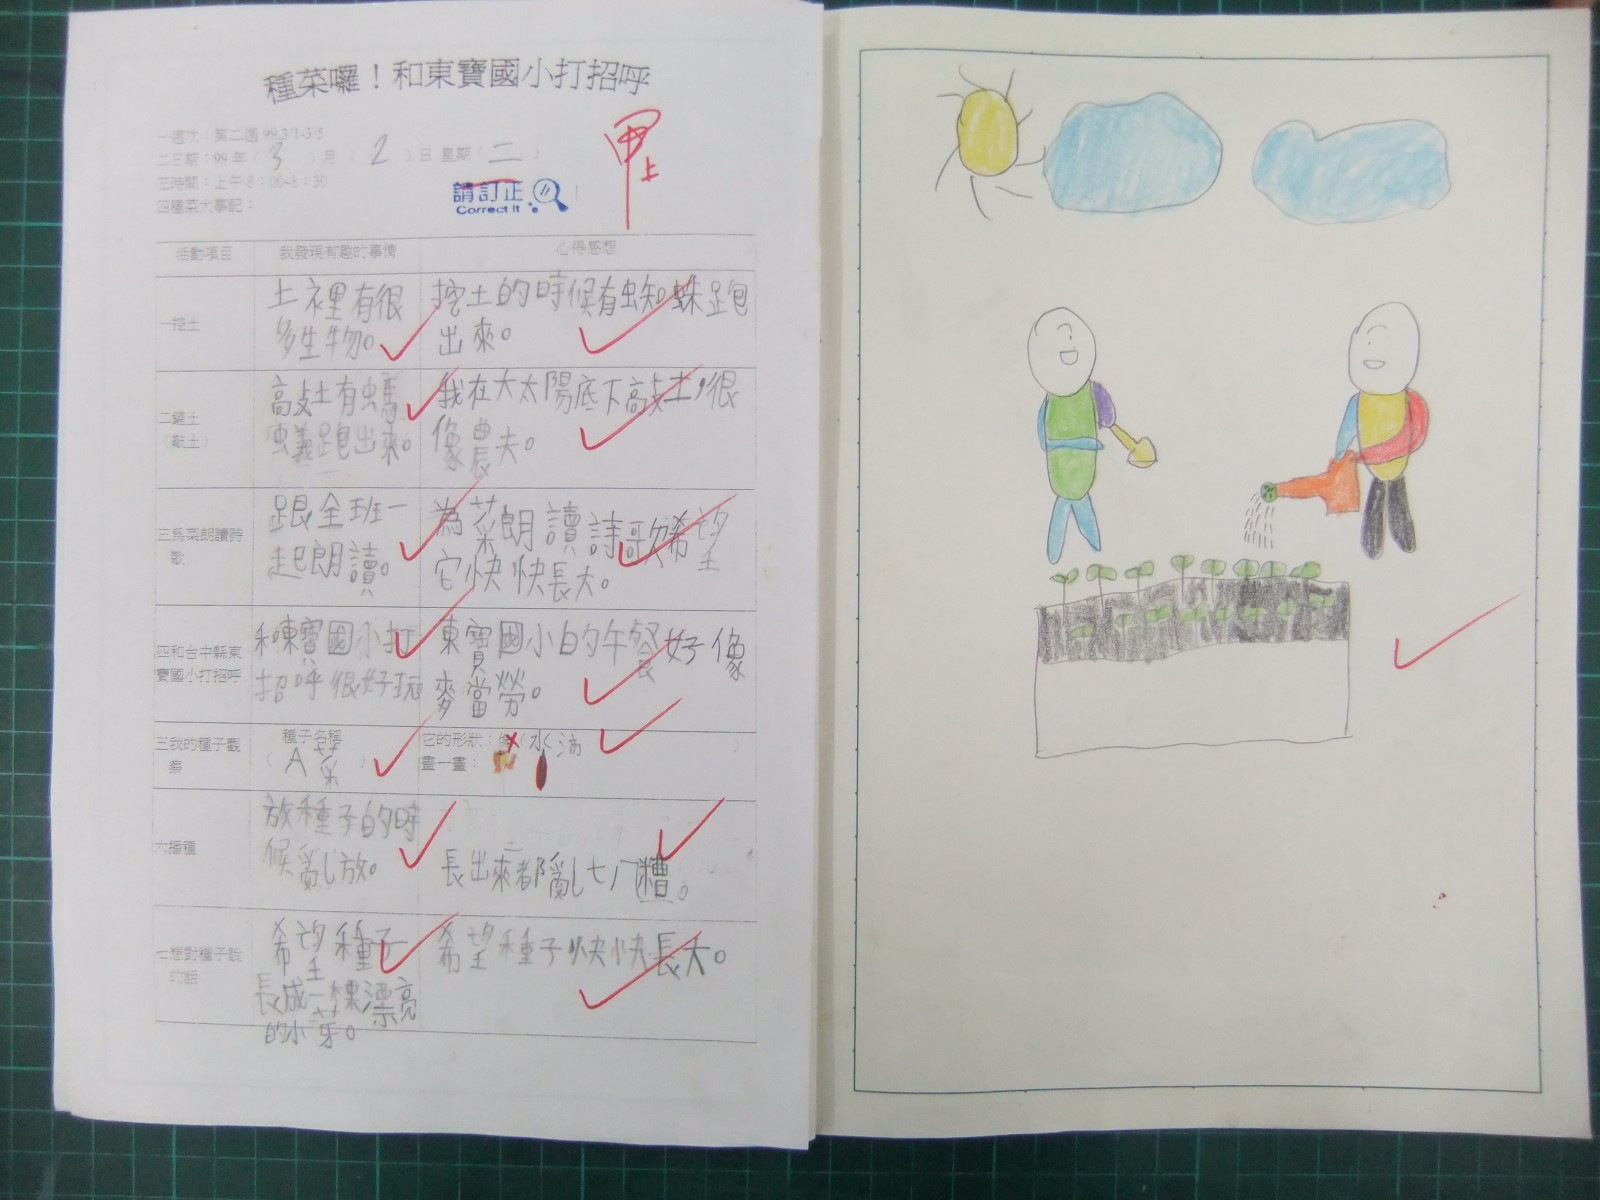 種菜囉!和東寶國小打招呼
一週次:第二週 99.3/1-3/5
二日期:99年(3)月(2)日 星期(二)
甲上
三時間:上午8:00-8:30
請訂正
Correct it
四種菜大事記:
活動項目 我發現有趣的事情 心得感想
一挖土
土裡有很
多生物。
挖土的時候有蜘蛛跑
出來。
二鏟土
(敲土)
高攴土有螞
蟻跑出來。
我在大太陽底下高攴土,很
像農夫。
三為菜朗讀詩
歌
跟全班一
起朗讀。
為菜朗讀詩歌希望
它快快長大。
四和台中縣東
寶國小打招呼
和東寶國小打
招呼很好玩
東寶國小的午餐好像
麥當勞。
三我的種子觀
察
種子名稱
(A菜)
它的形狀:像(水滴)
畫一畫:
六播種
放種子的時
候亂放。
長出來都亂七八糟。
七想對種子說
的話
希望種子
長成一棵漂亮
的小芽。
希望種子快快長大。